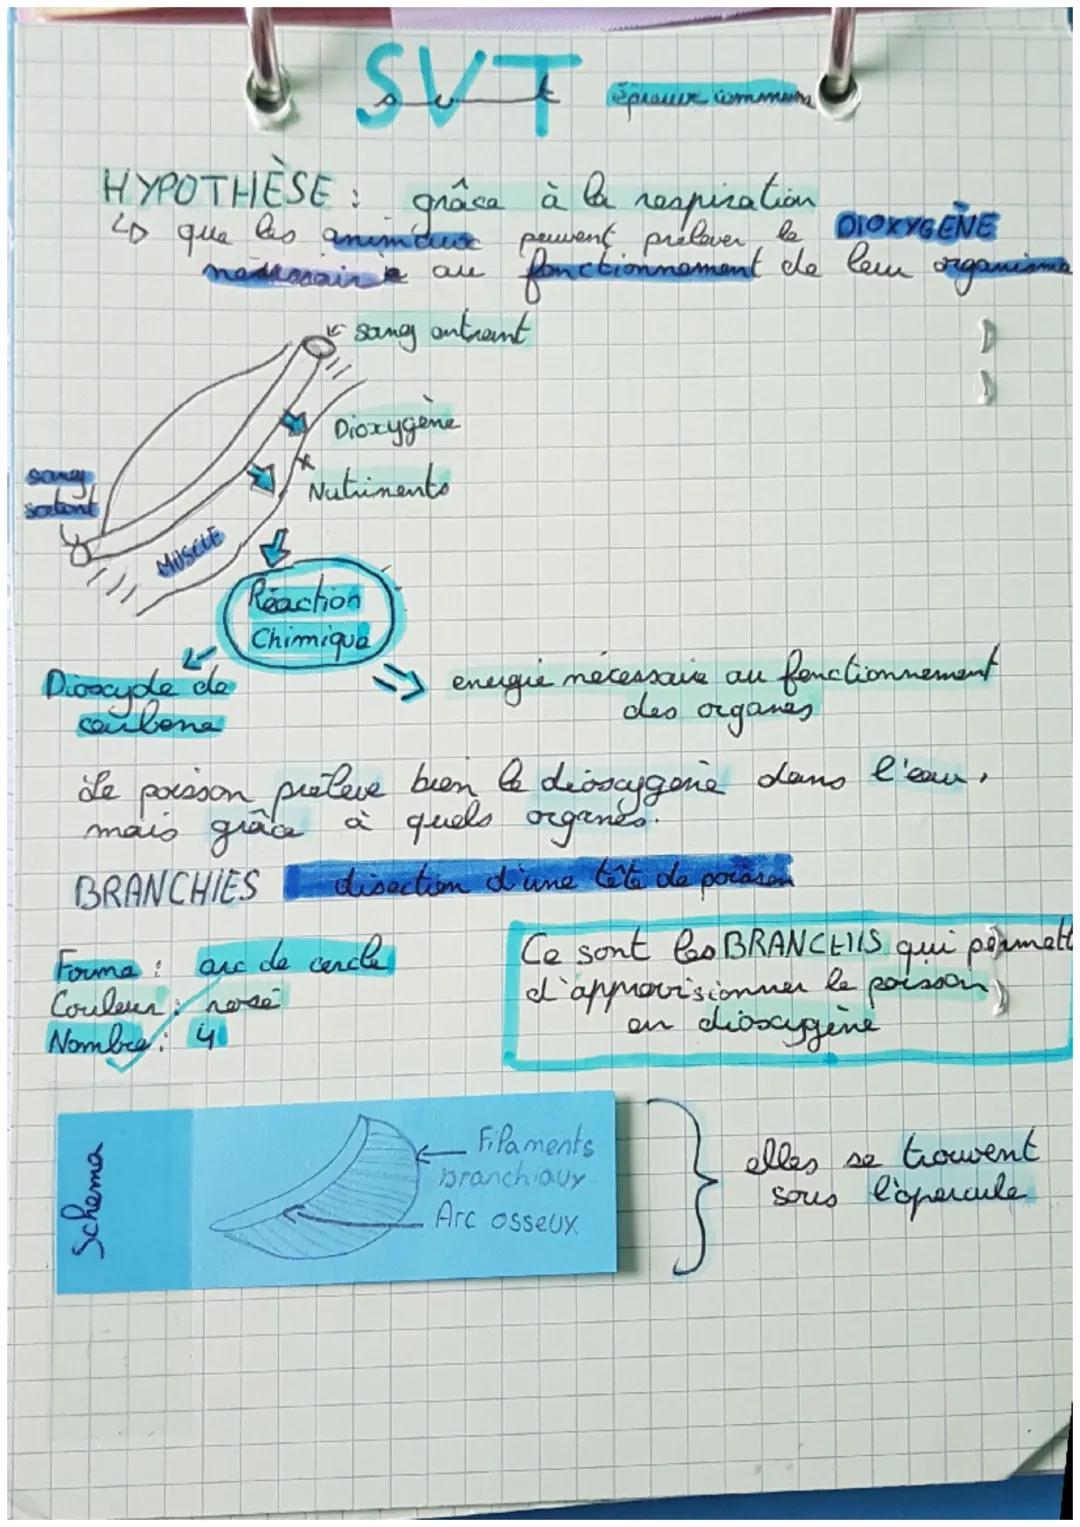 SVT
svt
épreuve commune
HYPOTHÈSE : grâce à la respiration
↳ que les animaux peuvent prélever le DIOXYGÈNE
nécessaire au fonctionnement de leur organisme
sang entrant
Dioxygène
sang
sortant
Nutriments
MUSCLE
Réaction
Chimique
Dioxyde de
carbone
energie nécessaire au fonctionnement
des organes
Le poisson prélève bien le dioxygène dans l'eau,
mais grâce à quels organes.
BRANCHIES disection d'une tête de poisson
Forme : arc de cercle
Couleur : rosé
Nombre : 4
Ce sont les BRANCHIS qui permett
d'approvisionner le poisson
en dioxygène
Schema
Filaments
branchiaux
Arc osseux
elles se trouvent
sous l'opercule